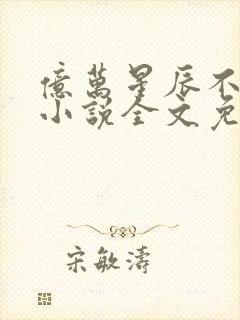 億萬星辰不
小說全文免
宋敏濤